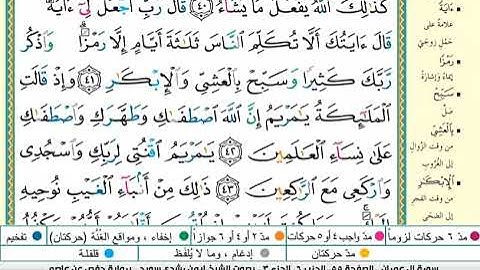 كَذَٰلِكَ ٱللَّهُ يَفْعَلُ مَا يَشَآءُ ٤٠ قَالَ رَبِّ ٱجْعَل لِّىٓ ءَايَةً
قَالَ ءَايَتُكَ أَلَّا تُكَلِّمَ ٱلنَّاسَ ثَلَٰثَةَ أَيَّامٍ إِلَّا رَمْزًا وَٱذْكُر
رَّبَّكَ كَثِيرًا وَسَبِّحْ بِٱلْعَشِىِّ وَٱلْإِبْكَٰرِ ٤١ وَإِذْ قَالَتِ
ٱلْمَلَٰٓئِكَةُ يَٰمَرْيَمُ إِنَّ ٱللَّهَ ٱصْطَفَىٰكِ وَطَهَّرَكِ وَٱصْطَفَىٰكِ
عَلَىٰ نِسَآءِ ٱلْعَٰلَمِينَ ٤٢ يَٰمَرْيَمُ ٱقْنُتِى لِرَبِّكِ وَٱسْجُدِى
وَٱرْكَعِى مَعَ ٱلرَّٰكِعِينَ ٤٣ ذَٰلِكَ مِنْ أَنۢبَآءِ ٱلْغَيْبِ نُوحِيهِ
ءَايَةً
علامة على
حمل زوجتي
رَمْزًا
إيماء وإشارة
سَبِّحْ
صلّ
بِٱلْعَشِىِّ
من وقت الزوال
إلى الغروب
ٱلْإِبْكَٰرِ
من وقت الفجر
إلى الضحى
مدّ ٦ حركات لزوماً
مدّ ٢ أو ٤ أو ٦ جوازاً
إخفاء، ومواقع الغُنَّة (حركتان)
تفخيم
مدّ واجب ٤ أو ٥ حركات
مدّ حركتان
إدغام، وما لا يُلفَظ
قلقلة